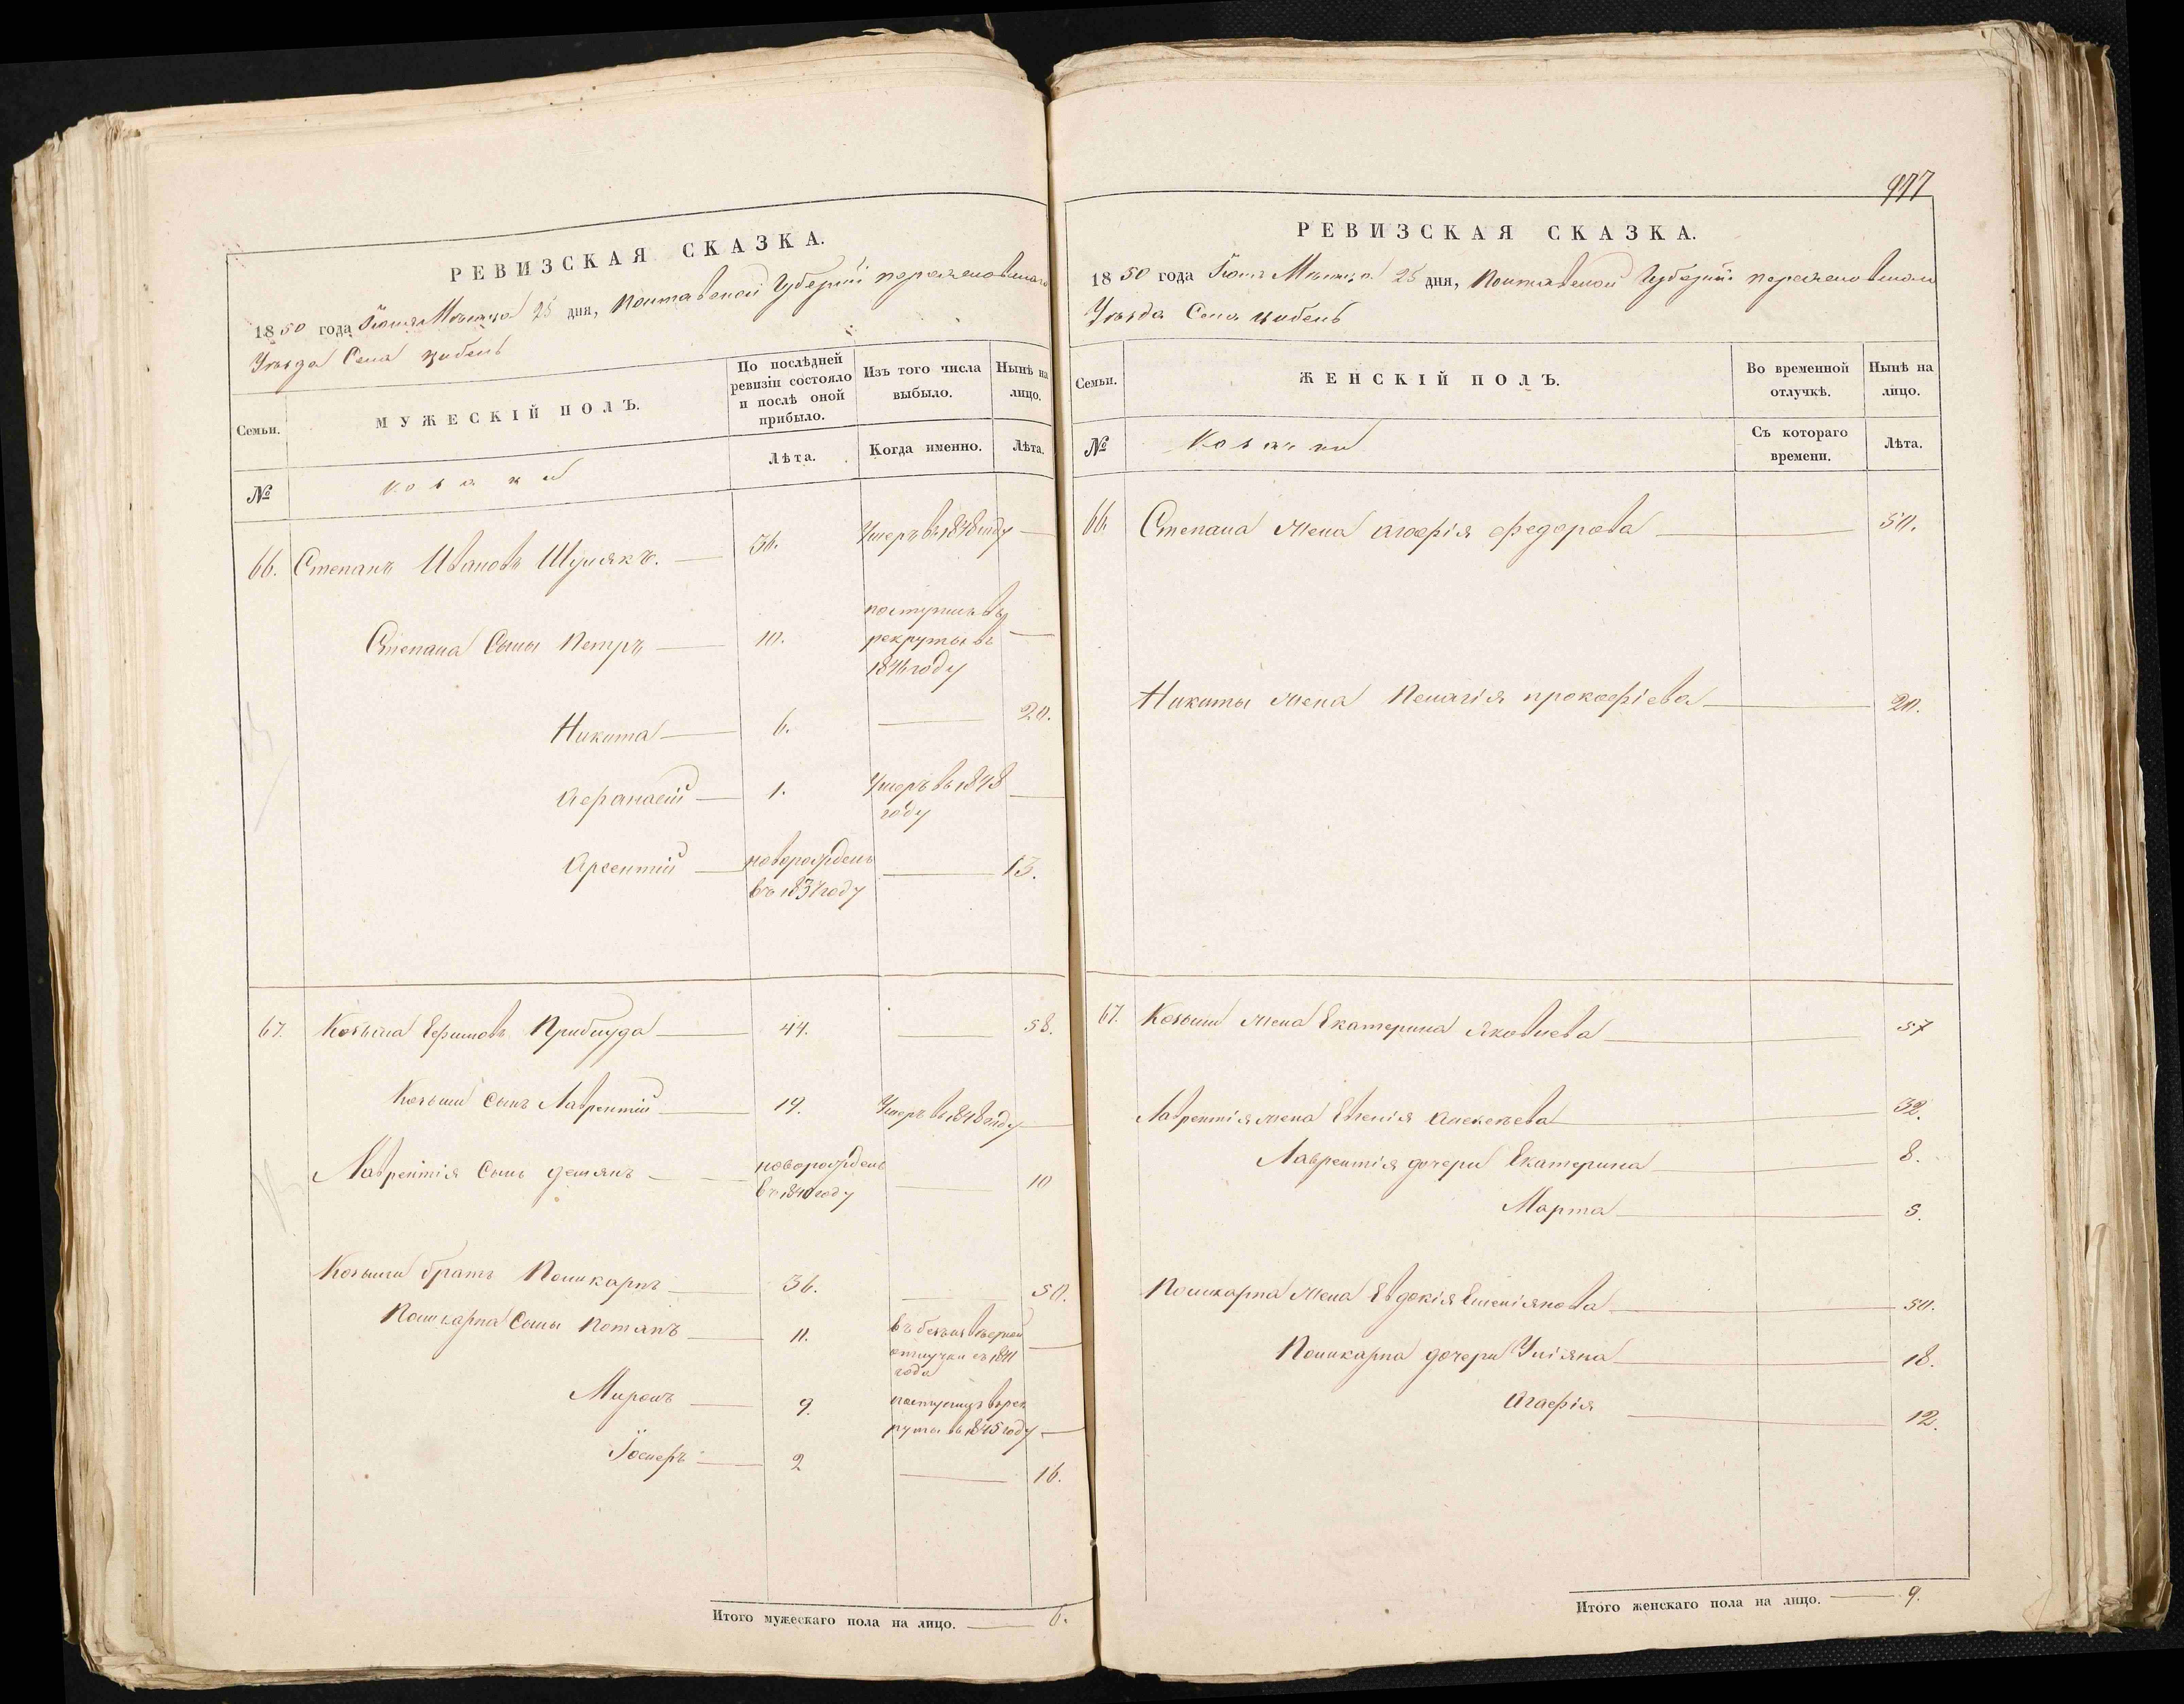 РЕВИЗСКАЯ СКАЗКА.
1850 года Іюля Мѣсяца 25 дня, Полтавской Губерніи переяславскаго
Уѣзда Села цибель
Семьи.
МУЖЕСКІЙ ПОЛЪ.
По послѣдней ревизіи состояло и послѣ оной прибыло.
Изъ того числа выбыло.
Нынѣ на лицо.
№
козаки
Лѣта.
Когда именно.
Лѣта.
66. Степанъ Ивановъ Шулякъ. 36. Умеръ въ 1848 году
Степана Сыны Петръ 10. поступилъ въ
рекруты въ
1846 году
Никита 6. 20.
Афанасій 1. Умеръ въ 1848
году
Арсентій новорожденъ 13.
въ 1837 году
67. Козьма Ефимовъ Приблуда 44. 58.
Козьмы Сынъ Лаврентій 19. Умеръ въ 1848 году
Лаврентія Сынъ демянъ новорожденъ 10
въ 1840 году
Козьмы братъ Поликарпъ 36. 50.
Поликарпа Сыны Потапъ 11. въ безъизвѣсной
отлучки съ 1841
года
Миронъ 9. поступилъ въ рек
руты въ 1845 году
Іосифъ 2 16.
Итого мужескаго пола на лицо. 6.
977
РЕВИЗСКАЯ СКАЗКА.
1850 года Іюля Мѣсяца 25 дня, Полтавской Губерніи переяславскаго
Уѣзда Села цибель
Семьи.
ЖЕНСКІЙ ПОЛЪ.
Во временной отлучкѣ.
Нынѣ на лицо.
№
Козачки
Съ котораго времени.
Лѣта.
66. Степана жена агафія федорова 50.
Никиты жена Пелагія прокофіева 20.
67. Козьмы жена Екатерина Яковлева 57
Лаврентія жена Евгенія Алексѣева 32.
Лаврентія дочери Екатерина 8.
Марта 5.
Поликарпа жена Евдокія Емеліянова 50.
Поликарпа дочери Уліяна 18.
Агафія 12.
Итого женскаго пола на лицо. 9.